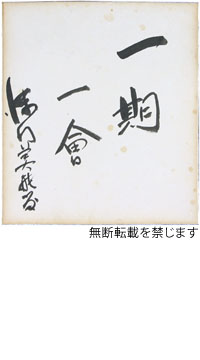 一期
一會
無断転載を禁じます